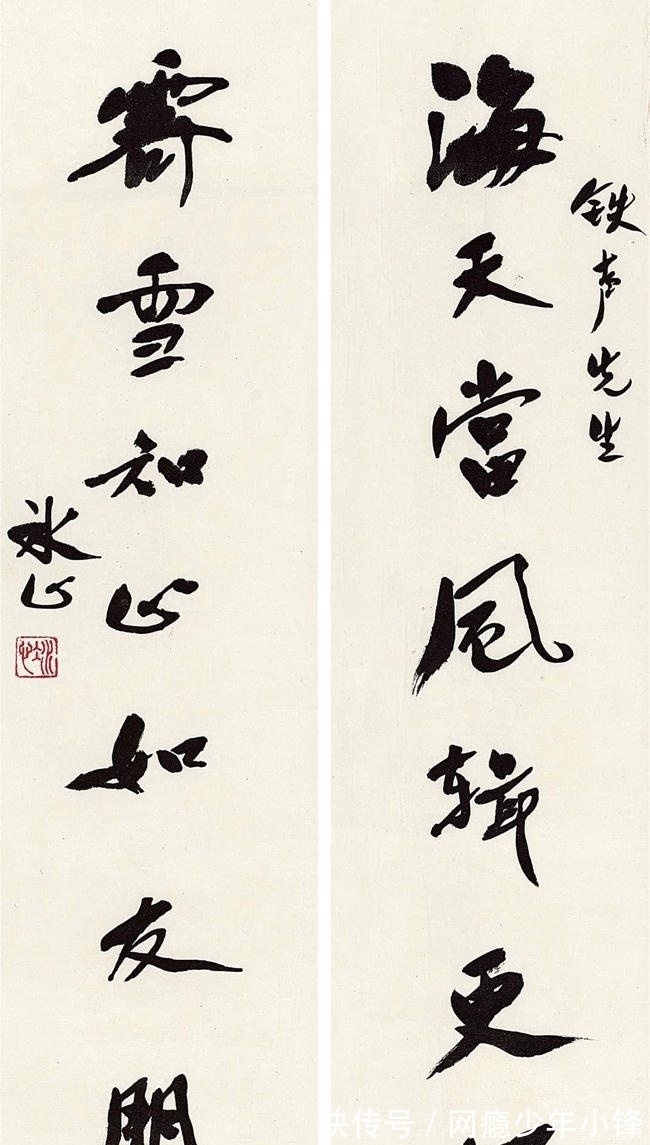 鉄声先生
海天當風輯更
霽雪知心如友朋
冰心
快传号 / 网瘾少年小锋